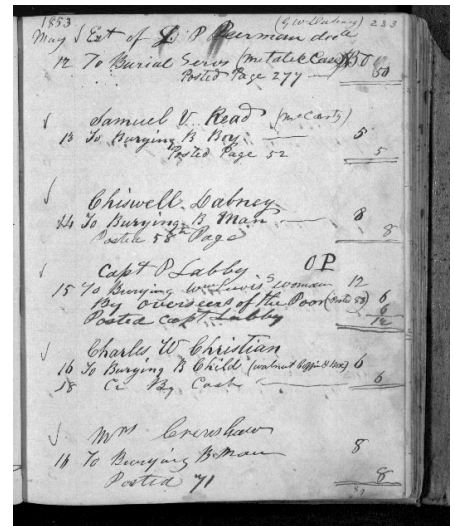 1853 (G W Dabney) 233
May Est of P Peerman decd
12 To Burial Servs (Metalic Case) $50
Posted Page 277 50
Samuel V. Read (McCarty)
13 To Burying B Boy 5
Posted Page 52 5
Chiswell Dabney
14 To Burying B Man 8
Posted 58th Page 8
Capt P Labby O P
15 To Burying Wm Lewis woman 12
By overseers of the Poor (Posted 53) 6
Posted Capt Labby 6
12
Charles W Christian
16 To Burying B Child (walnut coffin & box) 6
18 Cr By Cash 6
Mrs Crenshaw
16 To Burying B Man 8
Posted 71 8